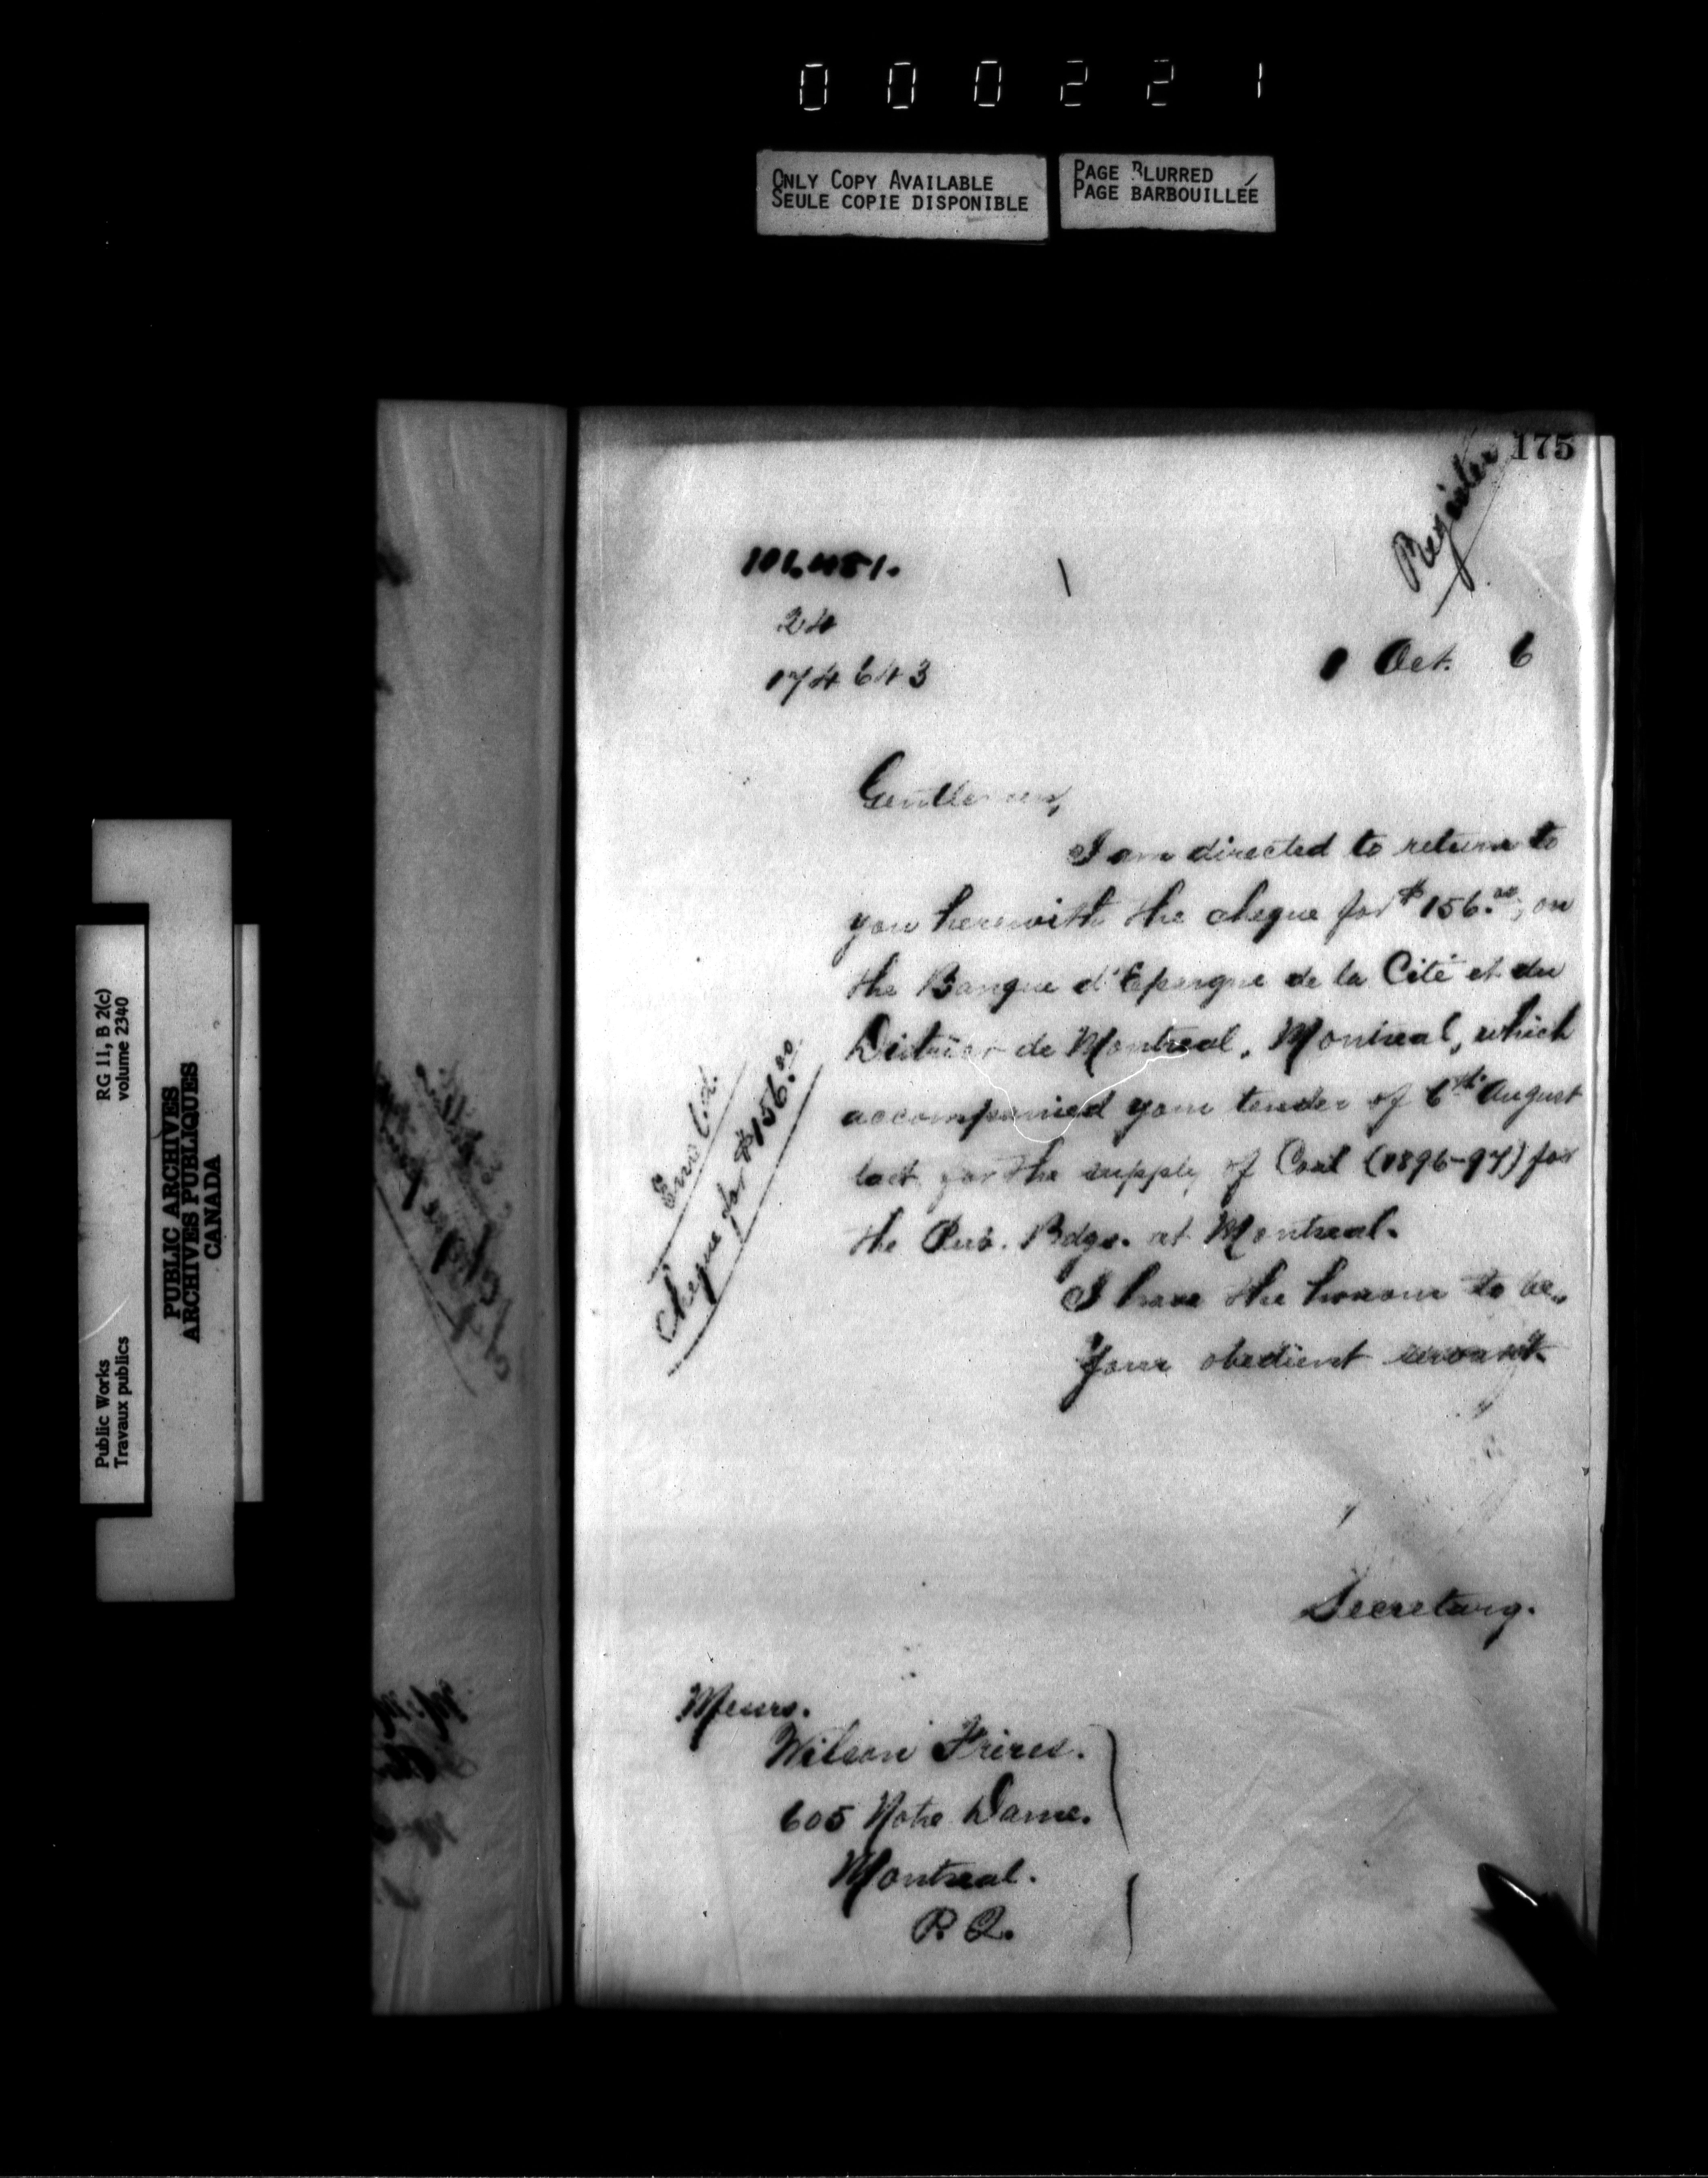 000221
ONLY COPY AVAILABLE
SEULE COPIE DISPONIBLE
PAGE BLURRED
PAGE BARBOUILLÉE
RG 11, B 2(c)
volume 2340
Public Works
Travaux publics
PUBLIC ARCHIVES
ARCHIVES PUBLIQUES
CANADA
175
Register
101.451.
24
174643
1 Oct. 6
Gentlemen,
I am directed to return to
you herewith the cheque for $156.00, on
the Banque d'Epargne de la Cité et du
District de Montreal, Montreal, which
accompanied your tender of 6th August
last for the supply of Coal (1896-97) for
the Pub. Bdgs. at Montreal.
I have the honour to be,
Your obedient servant.
Encl'd.
Cheque for $156.00.
Secretary.
Messrs.
Wilson Frères.
605 Notre Dame.
Montreal.
P.Q.